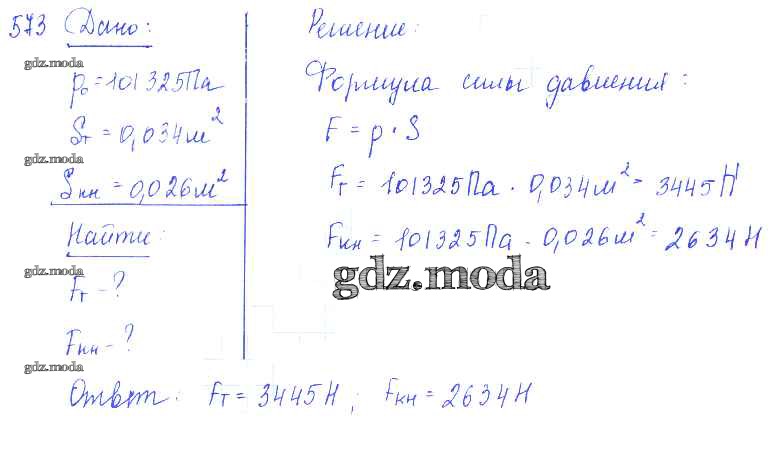 573 Дано:
gdz.moda
p₀ = 101325 Па
Sт = 0,034 м²
gdz.moda
Sкн = 0,026 м²
Найти:
gdz.moda
Fт - ?
Fкн - ?
gdz.moda
Решение:
Формула силы давления:
F = p · S
Fт = 101325 Па · 0,034 м² = 3445 Н
Fкн = 101325 Па · 0,026 м² = 2634 Н
gdz.moda
Ответ: Fт = 3445 Н; Fкн = 2634 Н